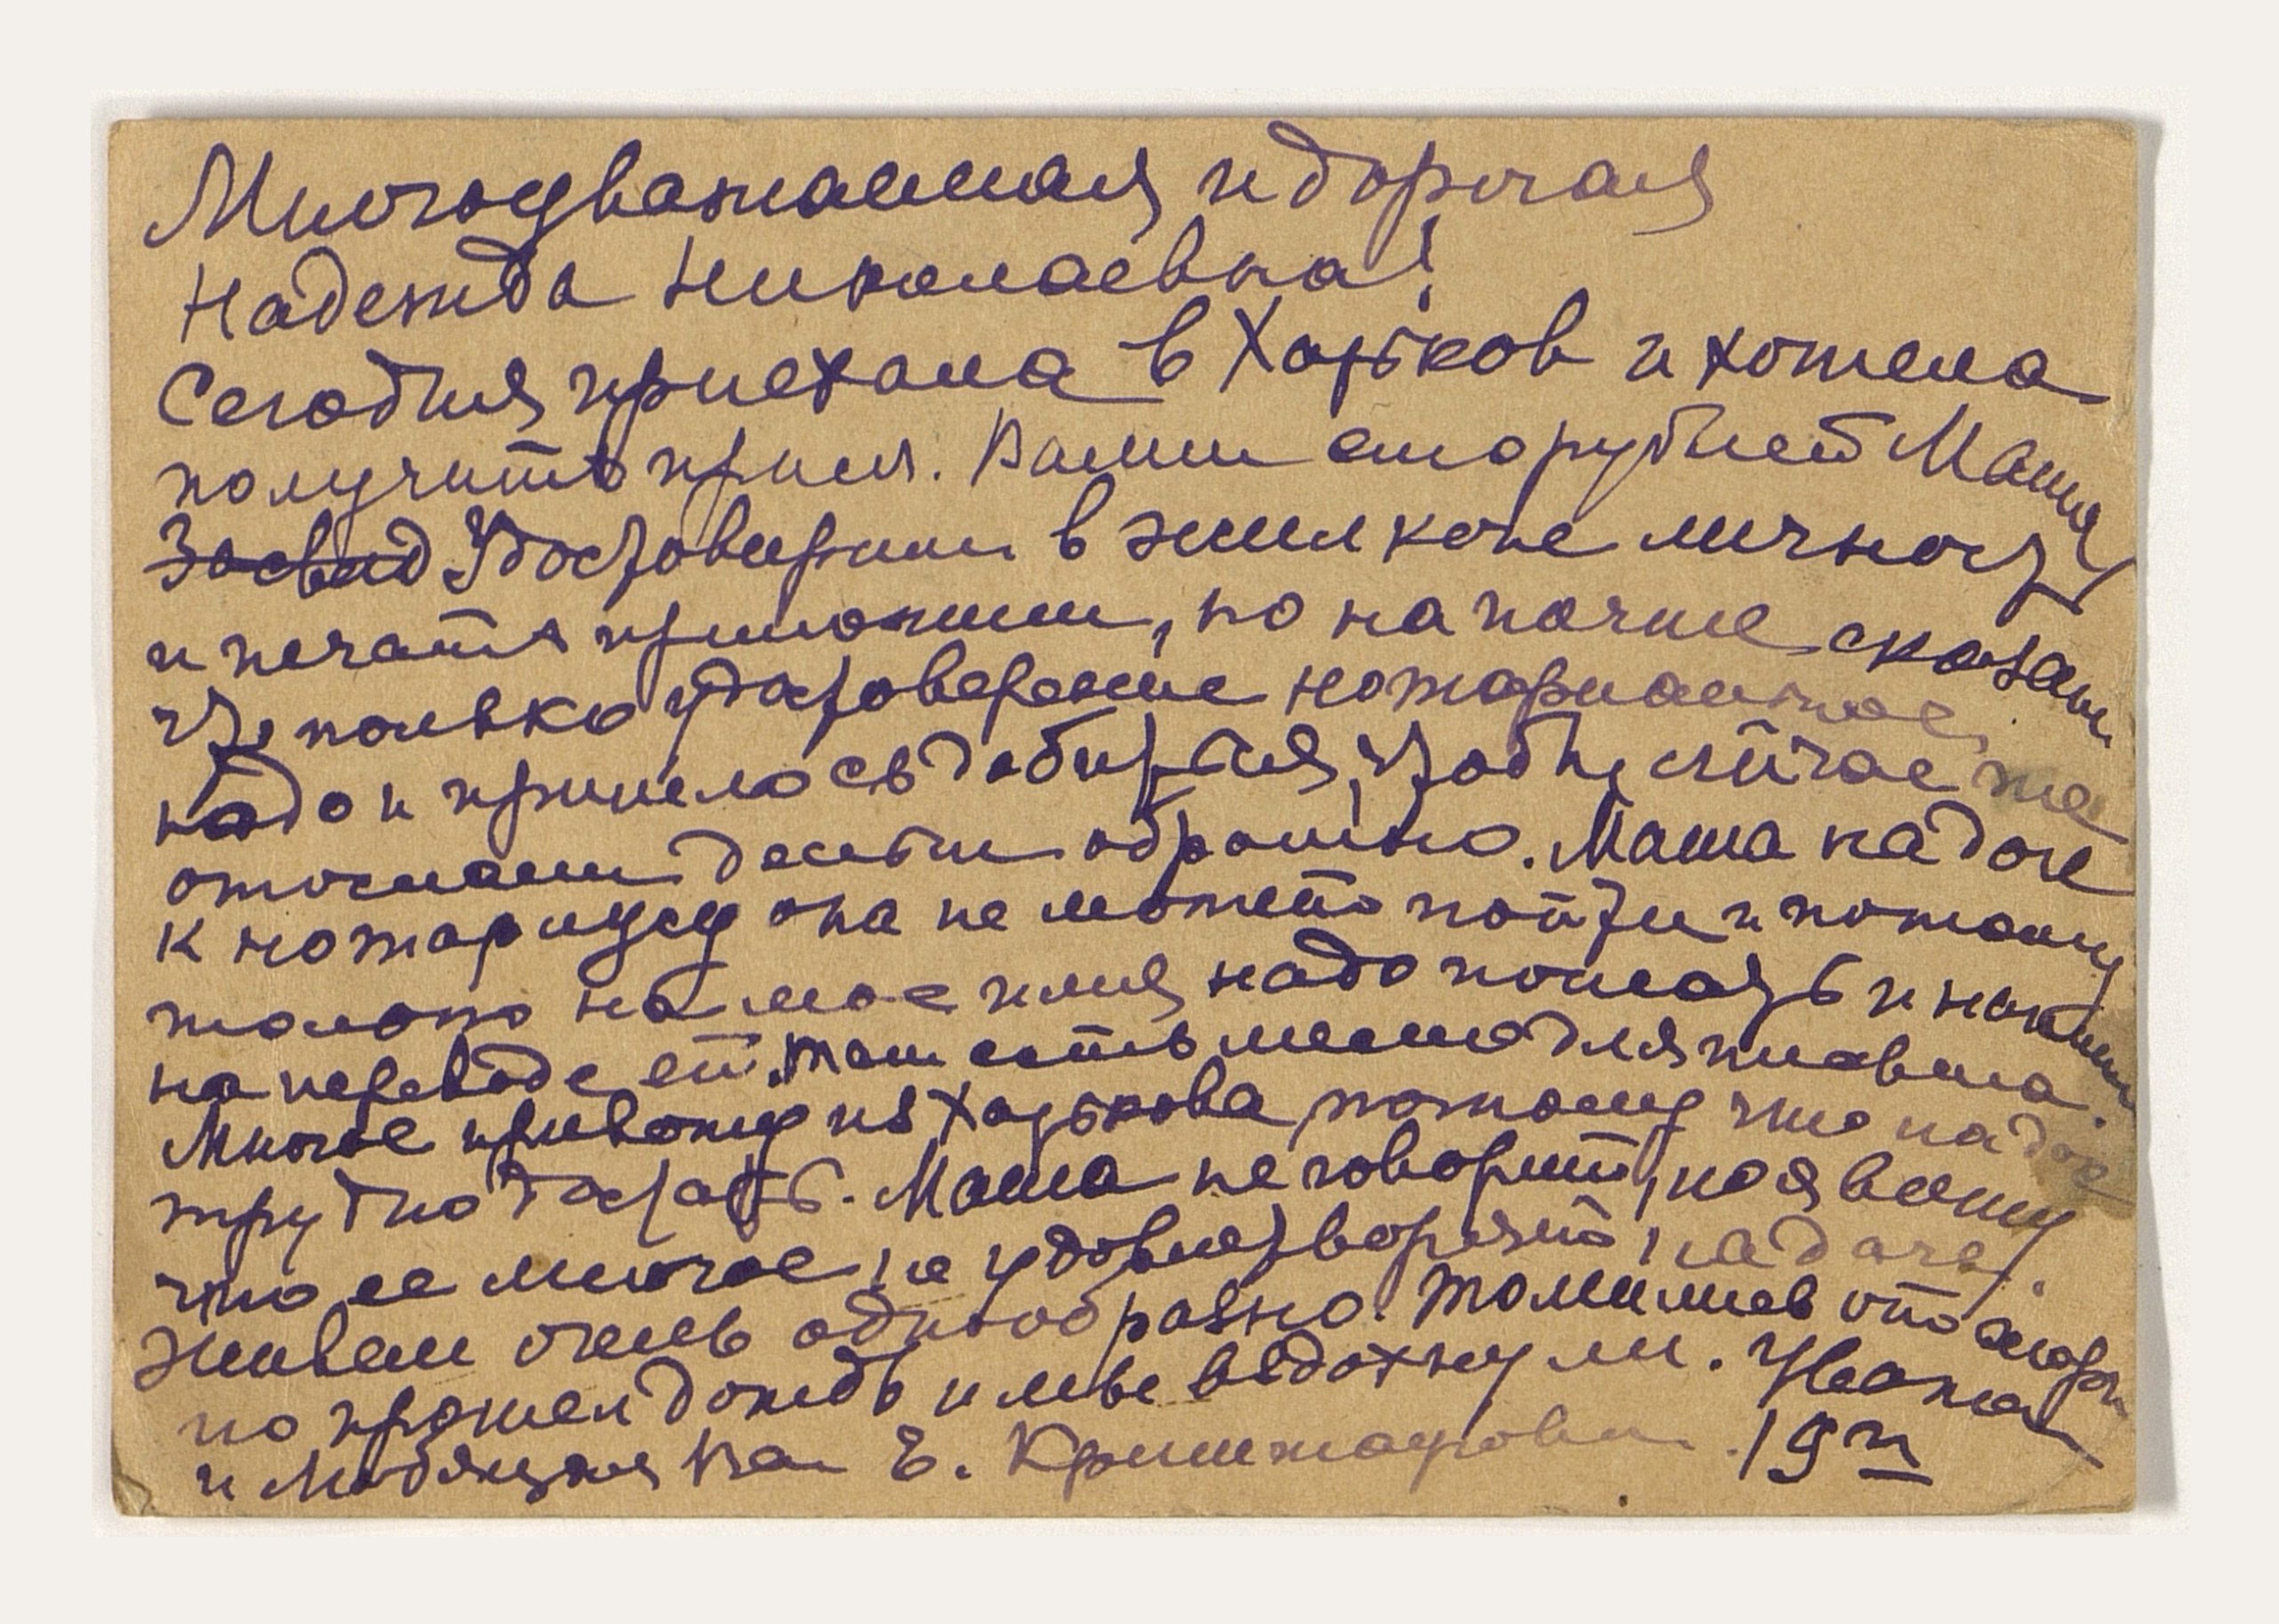 Многоуважаемая и дорогая
Надежда Николаевна!
Сегодня приехала в Харьков и хотела
получить присл. Вами сто рублей Маша
Засвид Удостоверили в жилкопе личность
и печать приложили, но на почте сказали
что только удостоверение нотариальное
надо и пришлось добиться, чтобы сейчас же
отослали деньги обратно. Маша на даче
к нотариусу она не может пойти и потому
только на мое имя надо послать и
на переводе ей. там есть место для письма.
Многое привожу из Харькова потому что на даче
трудно достать. Маша не говорит, но я вижу
что ее многое не удовлетворяет на даче.
Живем очень однообразно. Томились от жары
но прошел дождь и мы вздохнули. Уважающ
и любящая Вас Е. 19